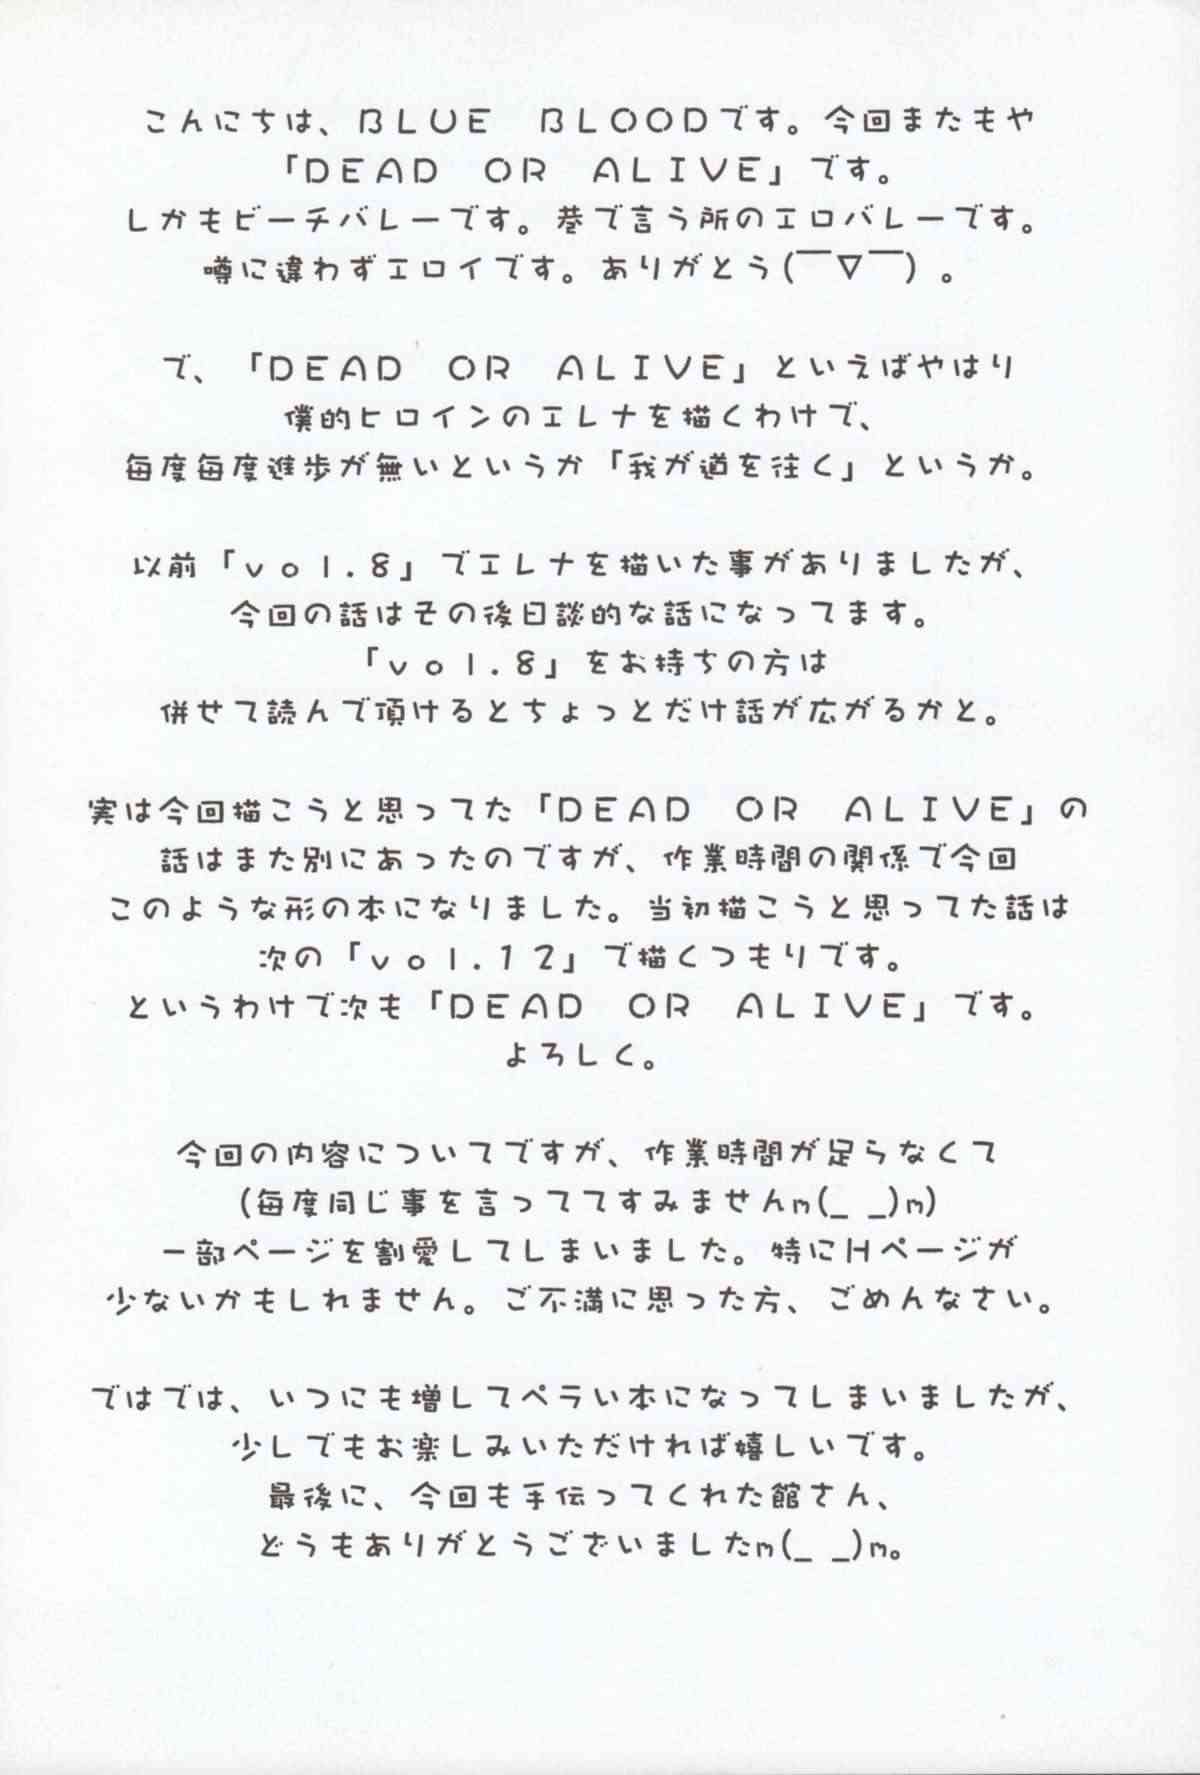 こんにちは、BLUE　BLOODです。今回またもや
「DEAD　OR　ALIVE」です。
しかもビーチバレーです。巷で言う所のエロバレーです。
噂に違わずエロイです。ありがとう(￣▽￣)。
で、「DEAD　OR　ALIVE」といえばやはり
僕的ヒロインのエレナを描くわけで、
毎度毎度進歩が無いというか「我が道を往く」というか。
以前「vol.8」でエレナを描いた事がありましたが、
今回の話はその後日談的な話になってます。
「vol.8」をお持ちの方は
併せて読んで頂けるとちょっとだけ話が広がるかと。
実は今回描こうと思ってた「DEAD　OR　ALIVE」の
話はまた別にあったのですが、作業時間の関係で今回
このような形の本になりました。当初描こうと思ってた話は
次の「vol.12」で描くつもりです。
というわけで次も「DEAD　OR　ALIVE」です。
よろしく。
今回の内容についてですが、作業時間が足らなくて
(毎度同じ事を言っててすみませんm(_ _)m)
一部ページを割愛してしまいました。特にHページが
少ないかもしれません。ご不満に思った方、ごめんなさい。
ではでは、いつにも増してペラい本になってしまいましたが、
少しでもお楽しみいただければ嬉しいです。
最後に、今回も手伝ってくれた館さん、
どうもありがとうございましたm(_ _)m。